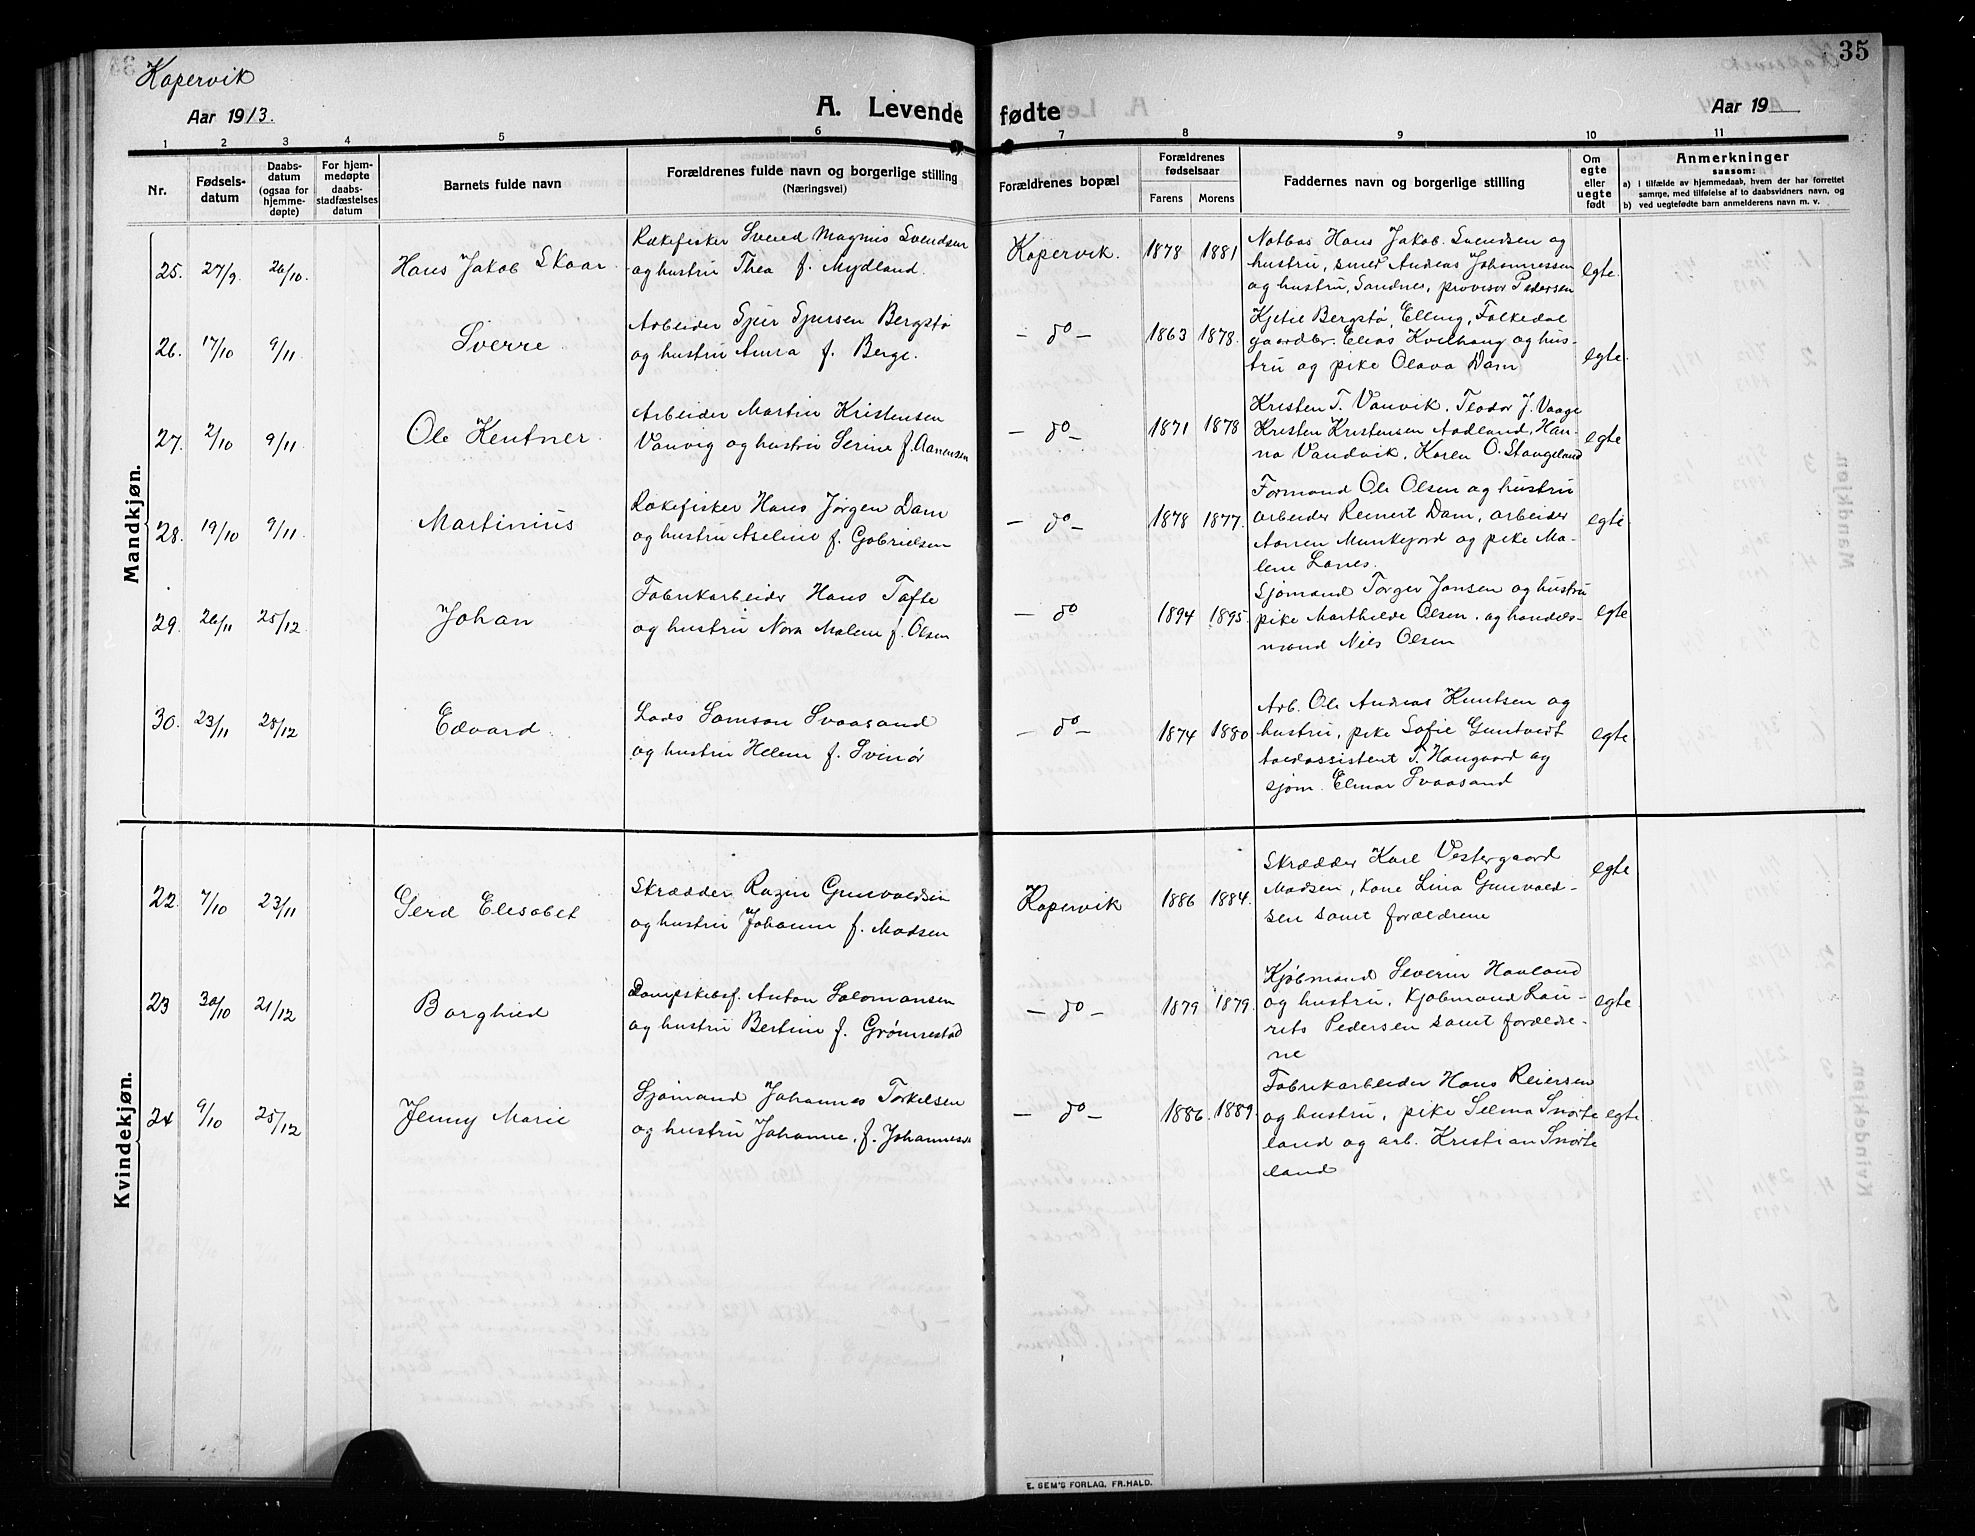 35
Kopervik
Aar 1913.
A. Levende fødte
Aar 19
1 2 3 4 5 6 7 8 9 10 11
Nr.
Fødsels-
datum
Daabs-
datum
(ogsaa for
hjemme-
døpte)
For hjem-
medøpte
daabs-
stadfæstelses
datum
Barnets fulde navn
Forældrenes fulde navn og borgerlige stilling
(Næringsvei)
Forældrenes bopæl
Forældrenes
fødselsaar
Farens Morens
Faddernes navn og borgerlige stilling
Om
egte
eller
uegte
født
Anmerkninger
saasom:
a) i tilfælde av hjemmedaab, hvem der har forrettet
samme, med tilføielse af to daabsvidners navn, og
b) ved uegtefødte barn anmelderens navn m. v.
Mandkjøn.
25. 27/9. 26/10. Hans Jakob Skaar
Rekefisker Svend Magnus Svendsen
og hustru Thea f. Mydland.
Kopervik. 1878 1881
Notbas Hans Jakob Svendsen og
hustru, smed Andreas Johannessen
og hustru, Sandnes, provisor Pedersen
egte.
26. 17/10 9/11 Sverre
Arbeider Sjur Sjursen Bergstø
og hustru Anna f. Berge.
- do - 1863 1878.
Kjetil Bergstø, Elling Falkedal
gaardbr. Elias Kvilhaug og hus-
tru og pike Olava Dam
egte.
27. 2/10 9/11 Ole Kentner
Arbeider Martin Kristensen
Vanvig og hustru Serine f. Aanensen
- do - 1871 1878
Kristen T. Vanvik, Teodor J. Vaage
Kristen Kristensen Aadland, Han-
na Vandvik, Karen O. Stangeland
egte
28. 19/10 9/11 Martinius
Rækefisker Hans Jørgen Dam
og hustru Aseline f. Gabrielsen
- do - 1878 1877.
Formand Ole Olsen og hustru
arbeider Reinert Dam, arbeider
Aanen Munkejord og pike Ma-
lene Lanes.
egte
29. 26/11 25/12 Johan
Fabrikarbeider Hans Tafte
og hustru Nora Malene f. Olsen
- do 1894 1895.
Sjømand Torger Jansen og hustru
pike Marthilde Olsen, og handels-
mand Niels Olsen
egte
30. 23/11 28/12 Edvard
Lods Samson Svaasand
og hustru Helene f. Svinør
- do - 1874 1880
Arb. Ole Andreas Knutsen og
hustru, pike Sofie Guntveit
toldassistent T. Haugaard og
sjøm. Elmar Svaasand
egte.
Kvindekjøn.
22. 7/10 23/11 Gerd Elisabet
Skrædder Razin Gunvaldsen
og hustru Johanne f. Madsen
Kopervik 1886 1884.
Skrædder Karl Vestergaard
Madsen, kone Lina Gunvald-
sen samt forældrene
egte
23 30/10 21/12 Borghild
Dampskibsf. Anton Salomonsen
og hustru Bertine f. Grønnestad
- do - 1879 1879.
Kjøbmand Severin Havland
og hustru, Kjøbmand Lau-
rits Pedersen samt forældre-
ne
egte
24 9/10 25/12 Jenny Marie
Sjømand Johannes Torkelsen
og hustru Johanne, f. Johannesen
- do - 1886. 1889.
Fabrikarbeider Hans Reiersen
og hustru, pike Selma Snørte
land og arb. Kristian Snørte
land
egte
E. SEM'S FORLAG, FR.HALD.